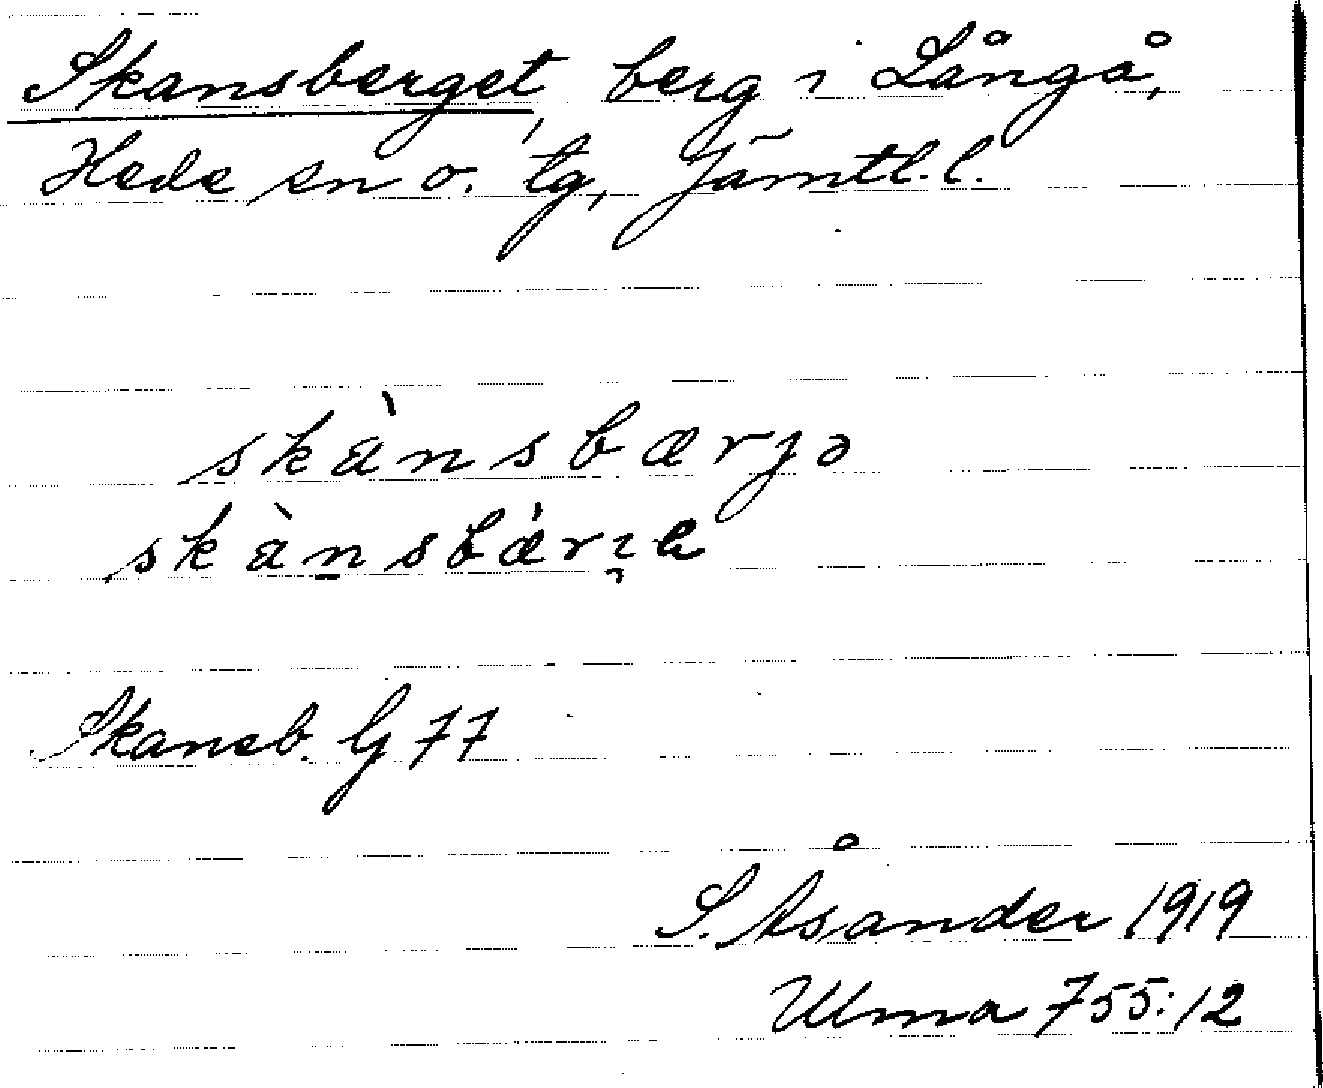 Skansberget, berg i Långå,
Hede sn o. tg, Jämtl. l.
skànsbærjə
Skansb. G 77
S. Åsander 1919
Ulma 755:12